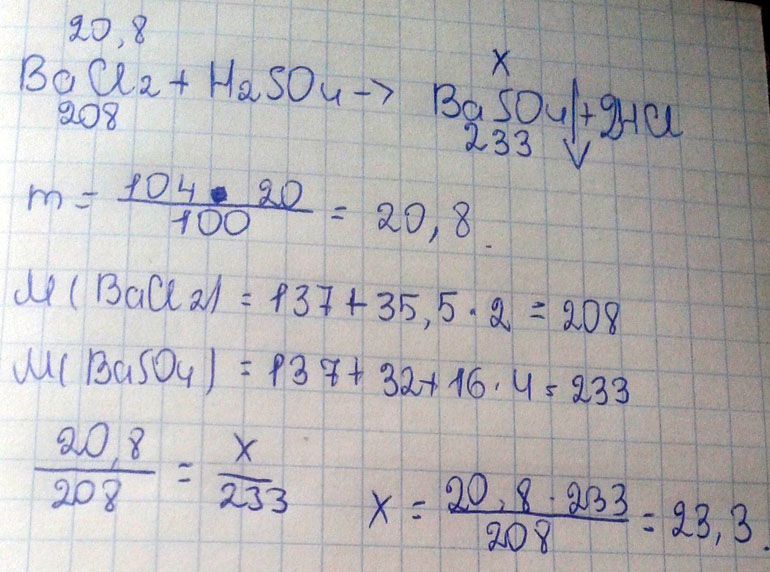 20,8 x
BaCl2 + H2SO4 → BaSO4↓ + 2HCl
208 233
m = 104 · 20 / 100 = 20,8.
M(BaCl2) = 137 + 35,5 · 2 = 208
M(BaSO4) = 137 + 32 + 16 · 4 = 233
20,8 / 208 = x / 233
x = 20,8 · 233 / 208 = 23,3.